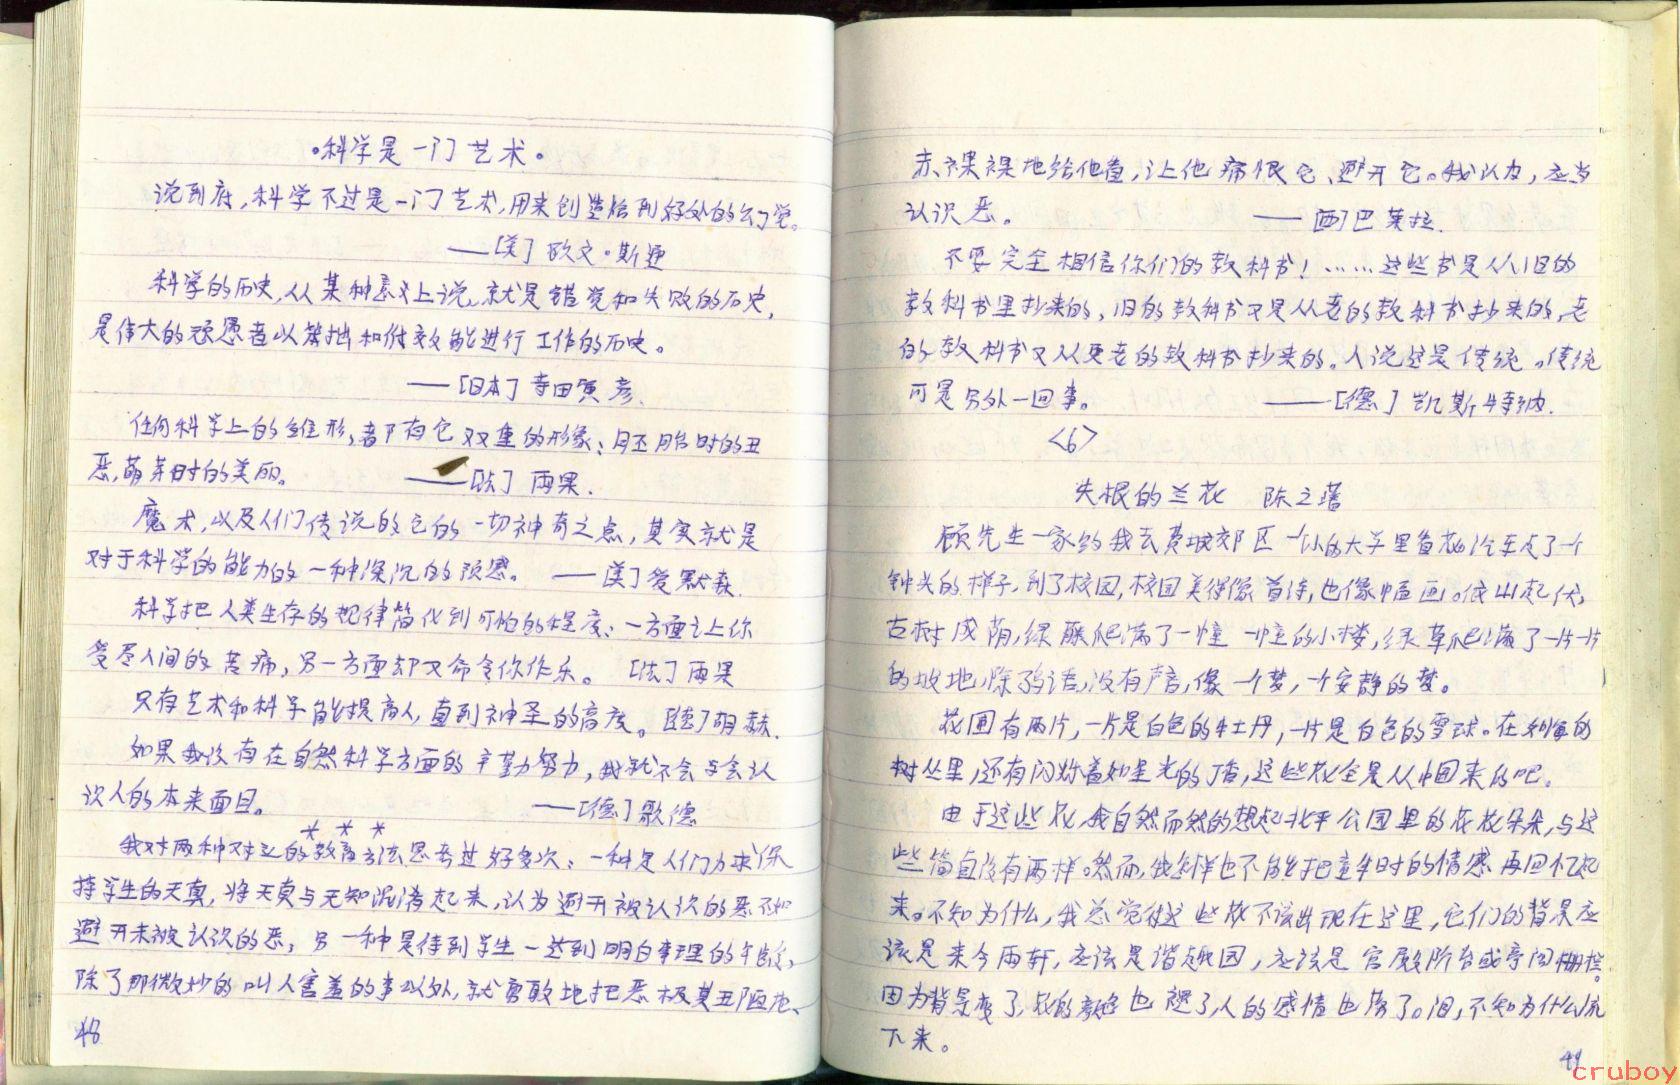 ·科学是一门艺术·
说到底,科学不过是一门艺术,用来创造恰到好处的幻觉。
——[美]欧文·斯通
科学的历史,从某种意义上说,就是错觉和失败的历史,
是伟大的顽愚者以笨拙和付效能进行工作的历史。
——[日本]寺田寅彦.
任何科学上的雏形,都有它双重的形象:胚胎时的丑
恶,萌芽时的美丽。 ——[法]雨果.
魔术,以及人们传说的它的一切神奇之点,其实就是
对于科学的能力的一种深沉的预感。 ——[美]爱默森.
科学把人类生存的规律简化到可怕的程度:一方面让你
受尽人间的苦痛,另一方面却又命令你作乐。 [法]雨果
只有艺术和科学能提高人,直到神圣的高度。[德]胡赫.
如果我没有在自然科学方面的辛勤努力,我就不会学会认
识人的本来面目。 ——[德]歌德
* * *
我对两种对立的教育方法思考过好多次:一种是人们力求保
持学生的天真,将天真与无知混淆起来,认为避开被认识的恶不如
避开未被认识的恶;另一种是待到学生一达到明白事理的年龄,
除了那微妙的叫人害羞的事以外,就勇敢地把恶极其丑陋地、
48
赤裸裸地给他看,让他痛恨它、避开它。我认为,应当
认识恶。 ——[西]巴莱拉.
不要完全相信你们的教科书!……这些书是从旧的
教科书里抄来的,旧的教科书又是从老的教科书抄来的,老
的教科书又从更老的教科书抄来的。人说这是传统。传统
可是另外一回事。 ——[德]凯斯特纳.
<6>
失根的兰花 陈之藩
顾先生一家约我去费城郊区一个小的大学里看花。汽车走了一个
钟头的样子,到了校园,校园美得像首诗,也像幅画。依山起伏,
古树成荫,绿藤爬满了一幢一幢的小楼,绿草爬满了一片一片
的坡地,除鸟语,没有声音,像一个梦,一个安静的梦。
花圃有两片,一片是白色的牡丹,一片是白色的雪球。在如海的
树丛里,还有闪烁着如星光的丁香,这些花全是从中国来的吧。
由于这些花,我自然而然的想起北平公园里的花花朵朵,与这
些简直没有两样。然而,我怎样也不能把童年时的情感再回忆起
来。不知为什么,我总觉得这些花不该出现在这里,它们的背景应
该是来今雨轩,应该是谐趣园,应该是宫殿阶台或亭阁栅栏。
因为背景变了,花的颜色也褪了,人的感情也落了。泪,不知为什么流
下来。
49
cruboy